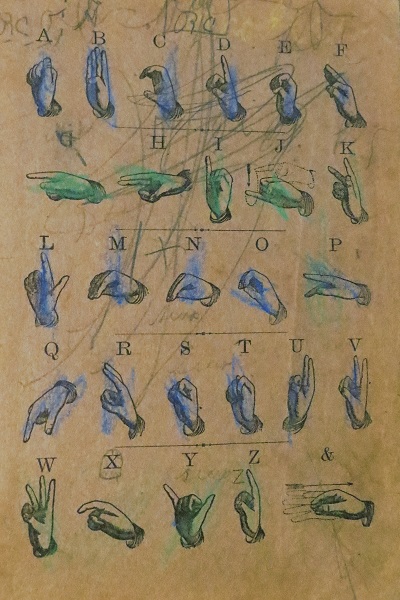 A B C D E F
G H I J K
L M N O P
Q R S T U V
W X Y Z &